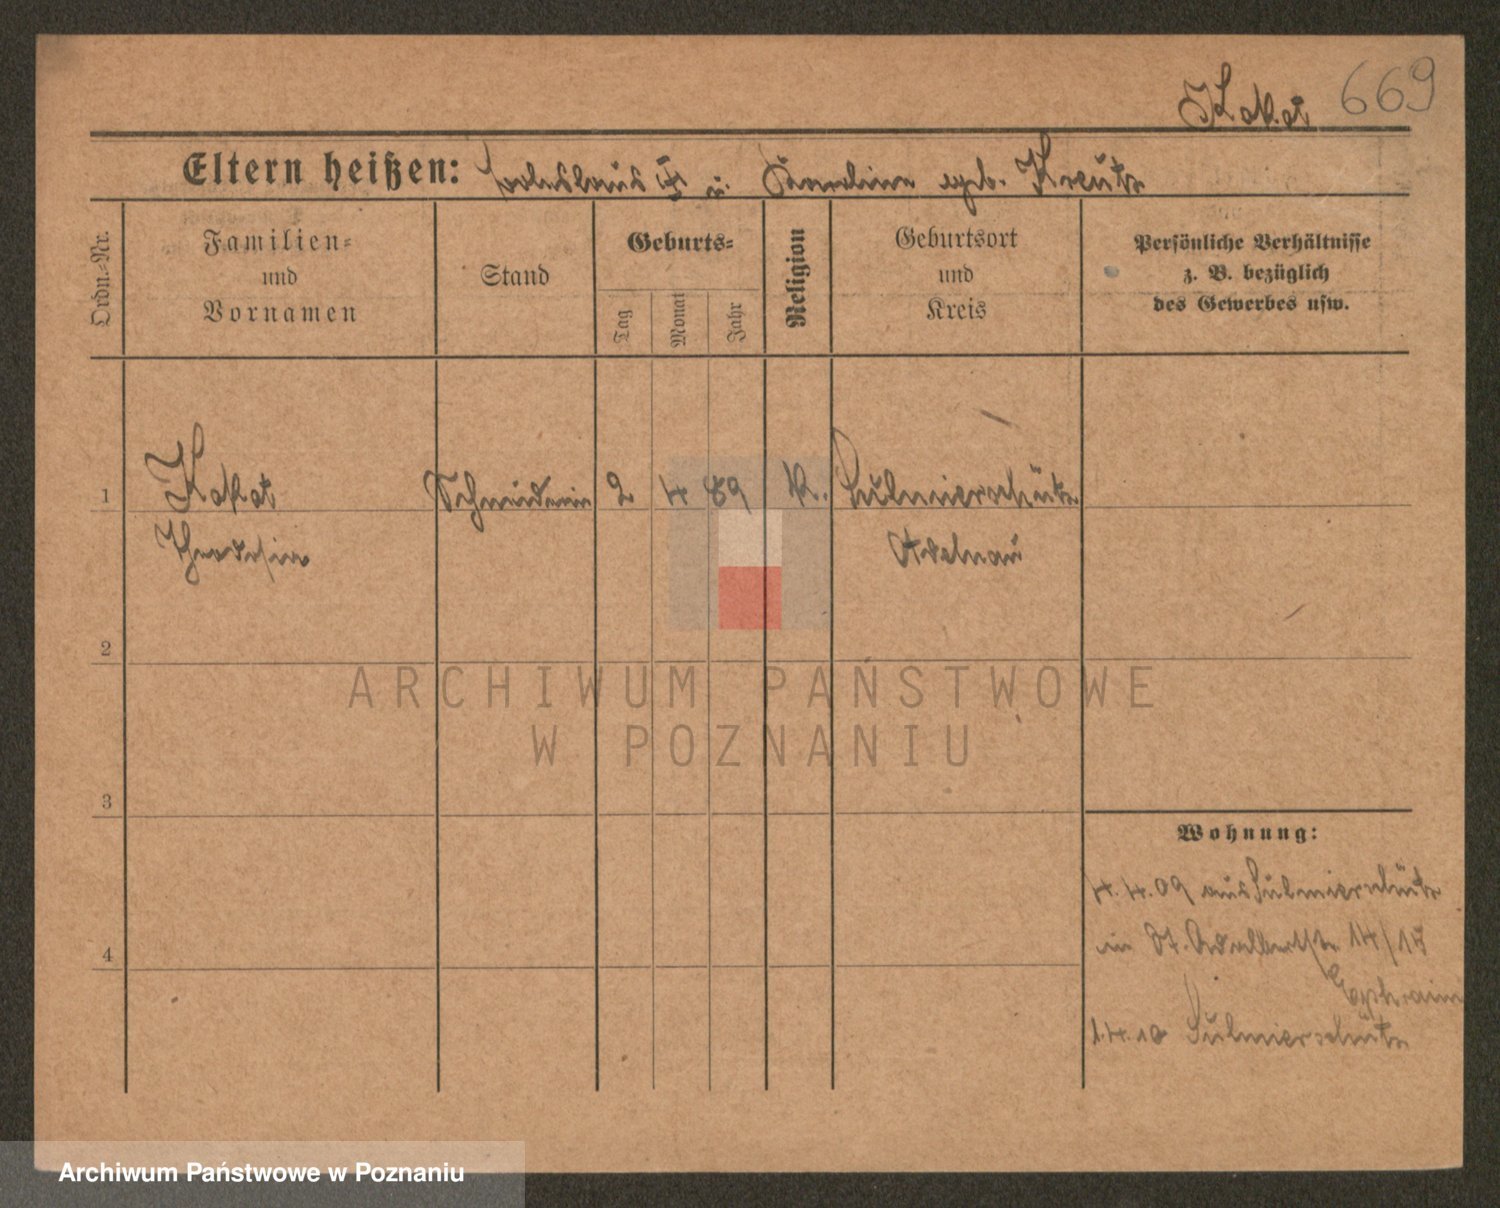 Kokot 669
Eltern heißen: Ladislaus † u. Karoline geb. Kreutz
Ordn.-Nr.
Familien-
und
Vornamen
Stand
Geburts-
Tag
Monat
Jahr
Religion
Geburtsort
und
Kreis
Persönliche Verhältnisse
z. B. bezüglich
des Gewerbes usw.
1 Kokot Schneiderin 2 4 89 K. Sulmierschütz
Theodosia Adelnau
2
3
4
Wohnung:
4.4.09 aus Sulmierschütz
in St. Adalbertstr. 14/15
Ephraim
1.4.10 Sulmierschütz
ARCHIWUM PAŃSTWOWE
W POZNANIU
Archiwum Państwowe w Poznaniu